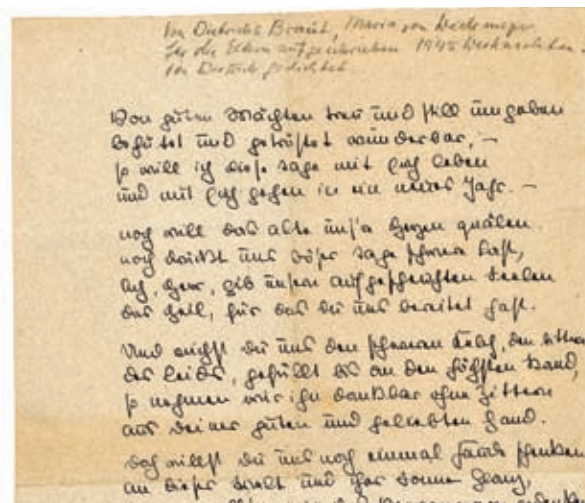 Von Dietrichs Braut, Maria von Wedemeyer
für die Eltern aufgeschrieben 1945 Weihnachten.
Von Dietrich gedichtet.
Von guten Mächten treu und still umgeben
behütet und getröstet wunderbar, –
so will ich diese Tage mit Euch leben
und mit Euch gehen in ein neues Jahr. –
noch will das alte uns're Herzen quälen.
noch drückt uns böser Tage schwere Last,
Ach, Herr, gib unsern aufgescheuchten Seelen
das Heil, für das du uns bereitet hast.
Und reichst du uns den schweren Kelch, den bittern
des Leids, gefüllt bis an den höchsten Rand,
so nehmen wir ihn dankbar ohne Zittern
aus deiner guten und geliebten Hand.
doch willst du uns noch einmal Freude schenken
an dieser Welt und ihrer Sonne Glanz,